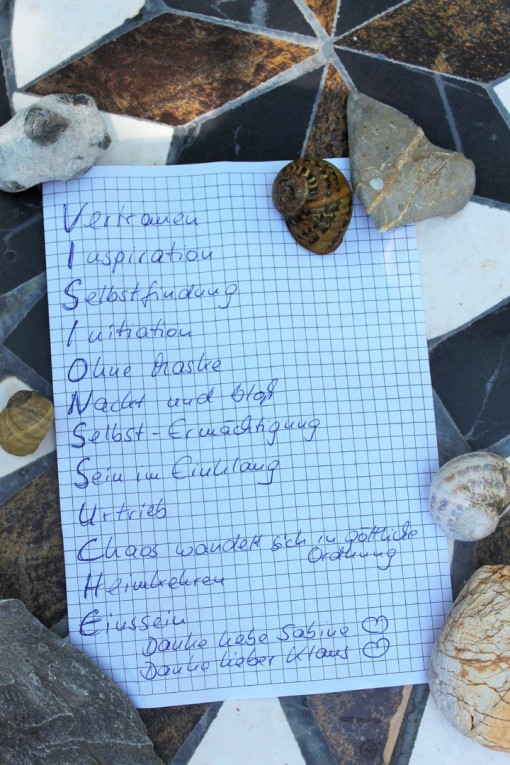 Vertrauen
Inspiration
Selbstfindung
Initiation
Ohne Maske
Nackt und bloß
Selbst-Ermächtigung
Sein im Einklang
Urtrieb
Chaos wandelt sich in göttliche
Ordnung
Heimkehren
Einssein
Danke liebe Sabine ♡
Danke lieber Klaus ♡